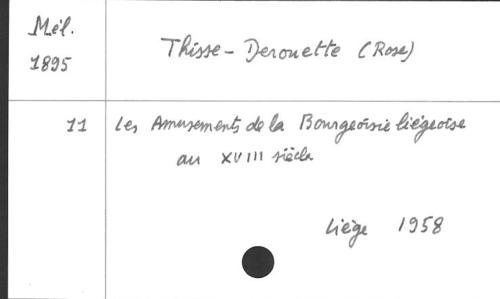 Mél.
1895
Thisse-Derouette (Rose)
11 Les Amusements de la Bourgeoisie liégeoise
au XVIII siècle
Liège 1958